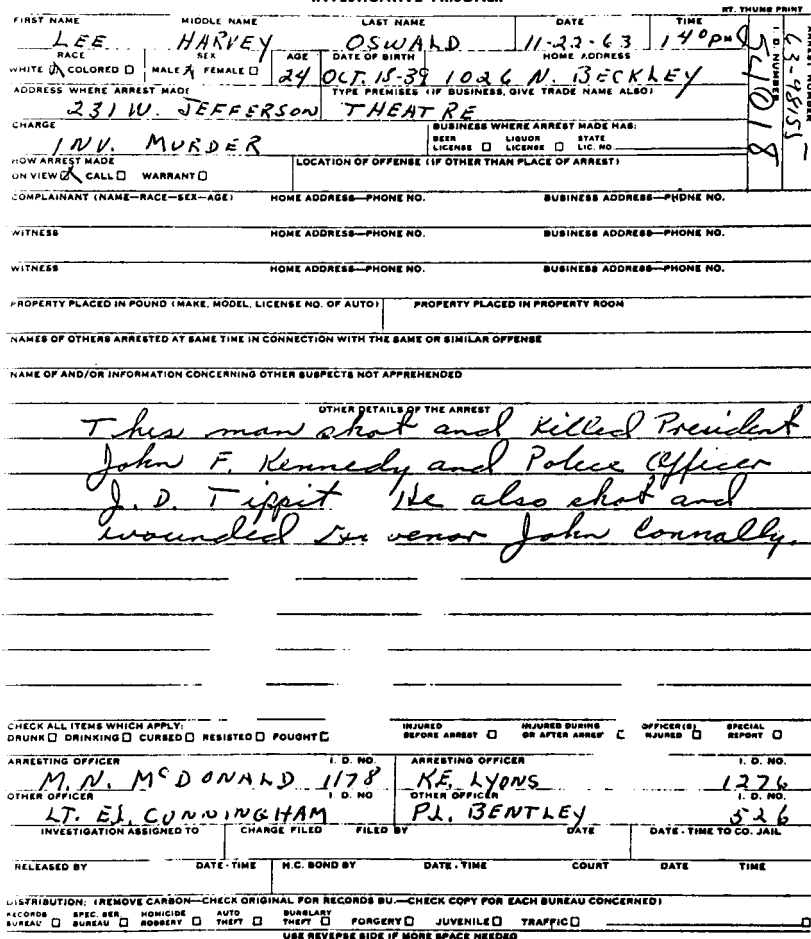 RT. THUMB PRINT
FIRST NAME MIDDLE NAME LAST NAME DATE TIME
LEE HARVEY OSWALD 11-22-63 1 40 PM
RACE SEX AGE DATE OF BIRTH HOME ADDRESS
WHITE COLORED MALE FEMALE 24 OCT. 18-39 1026 N. BECKLEY
I. D. NUMBER
54018
63-98155
ADDRESS WHERE ARREST MADE TYPE PREMISES (IF BUSINESS, GIVE TRADE NAME ALSO)
231 W. JEFFERSON THEATRE
CHARGE BUSINESS WHERE ARREST MADE HAS:
INV. MURDER BEER LICENSE LIQUOR LICENSE STATE LIC. NO.
HOW ARREST MADE LOCATION OF OFFENSE (IF OTHER THAN PLACE OF ARREST)
ON VIEW CALL WARRANT
COMPLAINANT (NAME—RACE—SEX—AGE) HOME ADDRESS—PHONE NO. BUSINESS ADDRESS—PHONE NO.
WITNESS HOME ADDRESS—PHONE NO. BUSINESS ADDRESS—PHONE NO.
WITNESS HOME ADDRESS—PHONE NO. BUSINESS ADDRESS—PHONE NO.
PROPERTY PLACED IN POUND (MAKE, MODEL, LICENSE NO. OF AUTO) PROPERTY PLACED IN PROPERTY ROOM
NAMES OF OTHERS ARRESTED AT SAME TIME IN CONNECTION WITH THE SAME OR SIMILAR OFFENSE
NAME OF AND/OR INFORMATION CONCERNING OTHER SUSPECTS NOT APPREHENDED
OTHER DETAILS OF THE ARREST
This man shot and killed President
John F. Kennedy and Police Officer
J. D. Tippit He also shot and
wounded Governor John Connally.
CHECK ALL ITEMS WHICH APPLY:
DRUNK DRINKING CURSED RESISTED FOUGHT INJURED BEFORE ARREST INJURED DURING OR AFTER ARREST OFFICER(S) INJURED SPECIAL REPORT
ARRESTING OFFICER I. D. NO. ARRESTING OFFICER I. D. NO.
M. N. McDONALD 1178 K.E. LYONS 1276
OTHER OFFICER I. D. NO OTHER OFFICER I. D. NO.
LT. E.L. CUNNINGHAM P.L. BENTLEY 526
INVESTIGATION ASSIGNED TO CHARGE FILED FILED BY DATE DATE-TIME TO CO. JAIL
RELEASED BY DATE-TIME H.C. BOND BY DATE-TIME COURT DATE TIME
DISTRIBUTION: (REMOVE CARBON—CHECK ORIGINAL FOR RECORDS BU.—CHECK COPY FOR EACH BUREAU CONCERNED)
RECORDS BUREAU SPEC. SER. BUREAU HOMICIDE ROBBERY AUTO THEFT BURGLARY THEFT FORGERY JUVENILE TRAFFIC
USE REVERSE SIDE IF MORE SPACE NEEDED